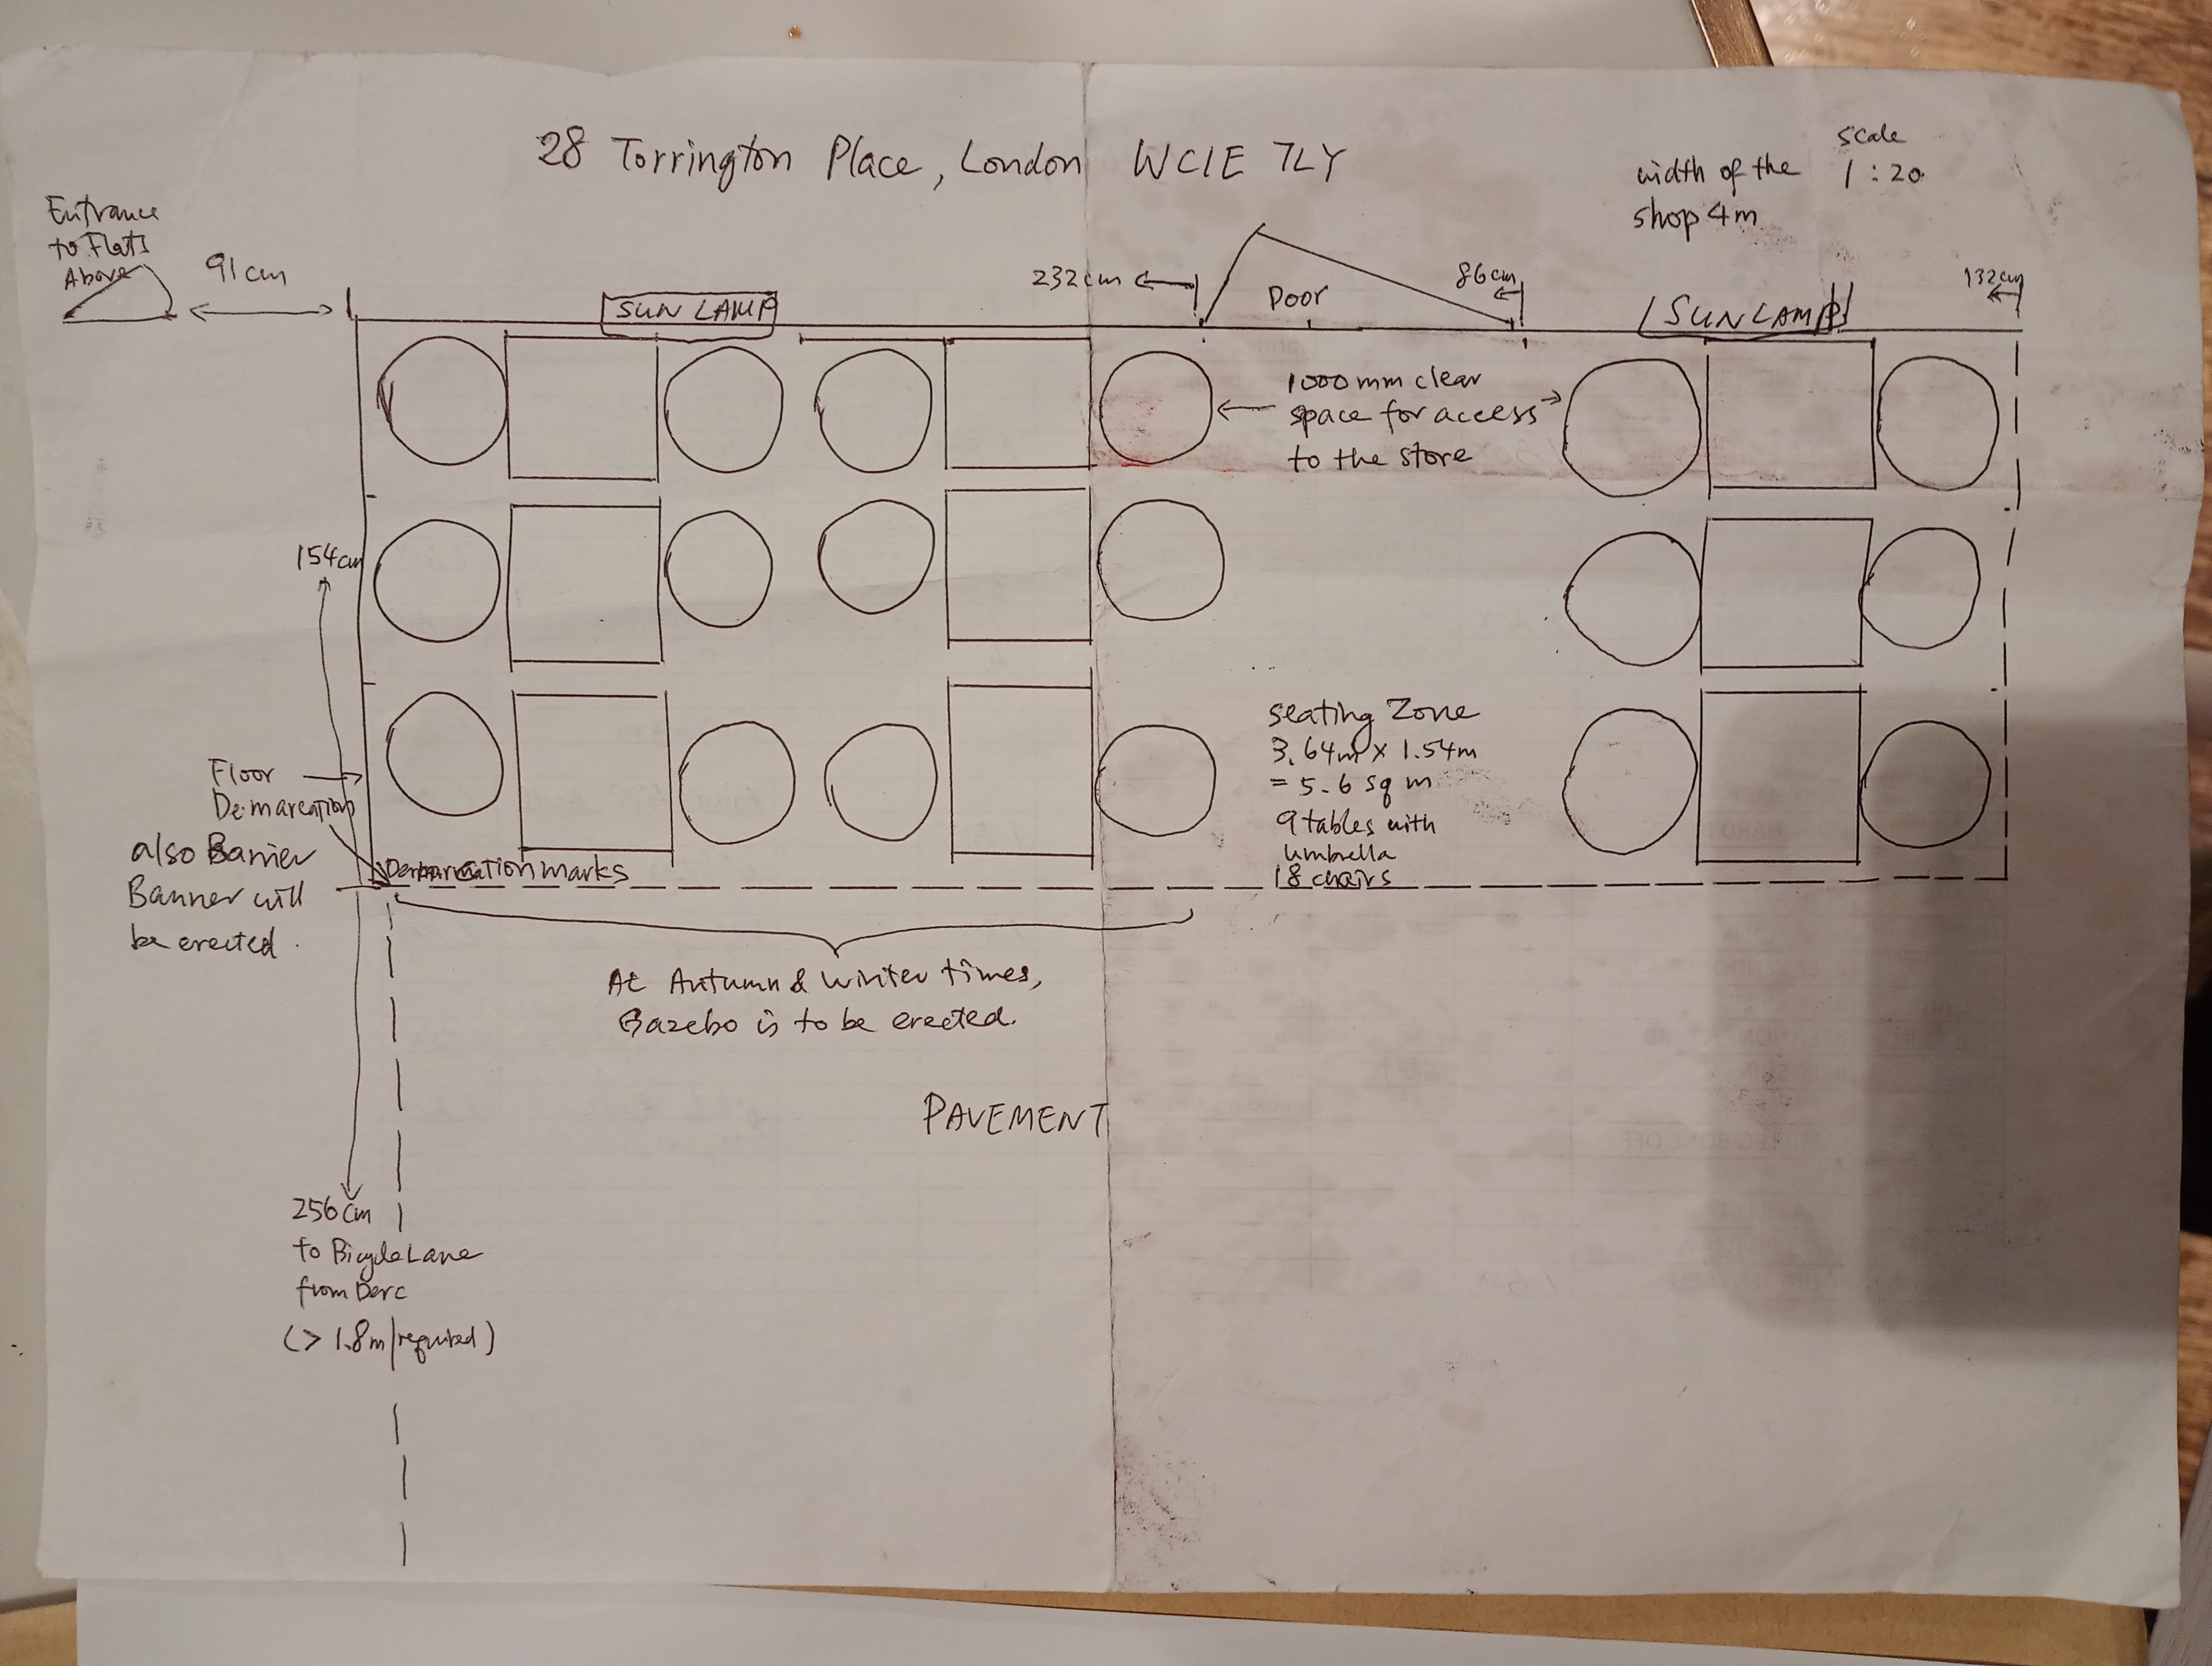 28 Torrington Place, London WC1E 7LY
scale
1 : 20
width of the
shop 4m
Entrance
to Flats
Above
91cm
SUN LAMP
232cm
Door
86cm
SUN LAMP
132cm
1000mm clear
space for access
to the store
154cm
seating Zone
3.64m x 1.54m
= 5.6 sq m
9 tables with
umbrella
18 chairs
Floor
Demarcation
also Barrier
Banner will
be erected.
Demarcation marks
At Autumn & Winter times,
Gazebo is to be erected.
PAVEMENT
256cm
to Bicycle Lane
from
(> 1.8m required)